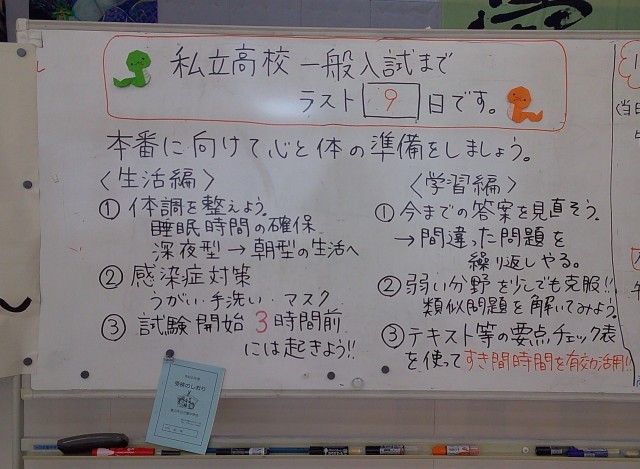 私立高校 一般入試まで
ラスト 9 日です。
本番に向けて心と体の準備をしましょう。
〈生活編〉
① 体調を整えよう。
睡眠時間の確保
深夜型→朝型の生活へ
② 感染症対策
うがい・手洗い・マスク
③ 試験開始 3時間前
には起きよう!!
〈学習編〉
① 今までの答案を見直そう。
→間違った問題を
繰り返しやる。
② 弱い分野を少しでも克服!!
類似問題を解いてみよう
③ テキスト等の要点チェック表
を使ってすき間時間を有効活用!!
受検のしおり
(当日